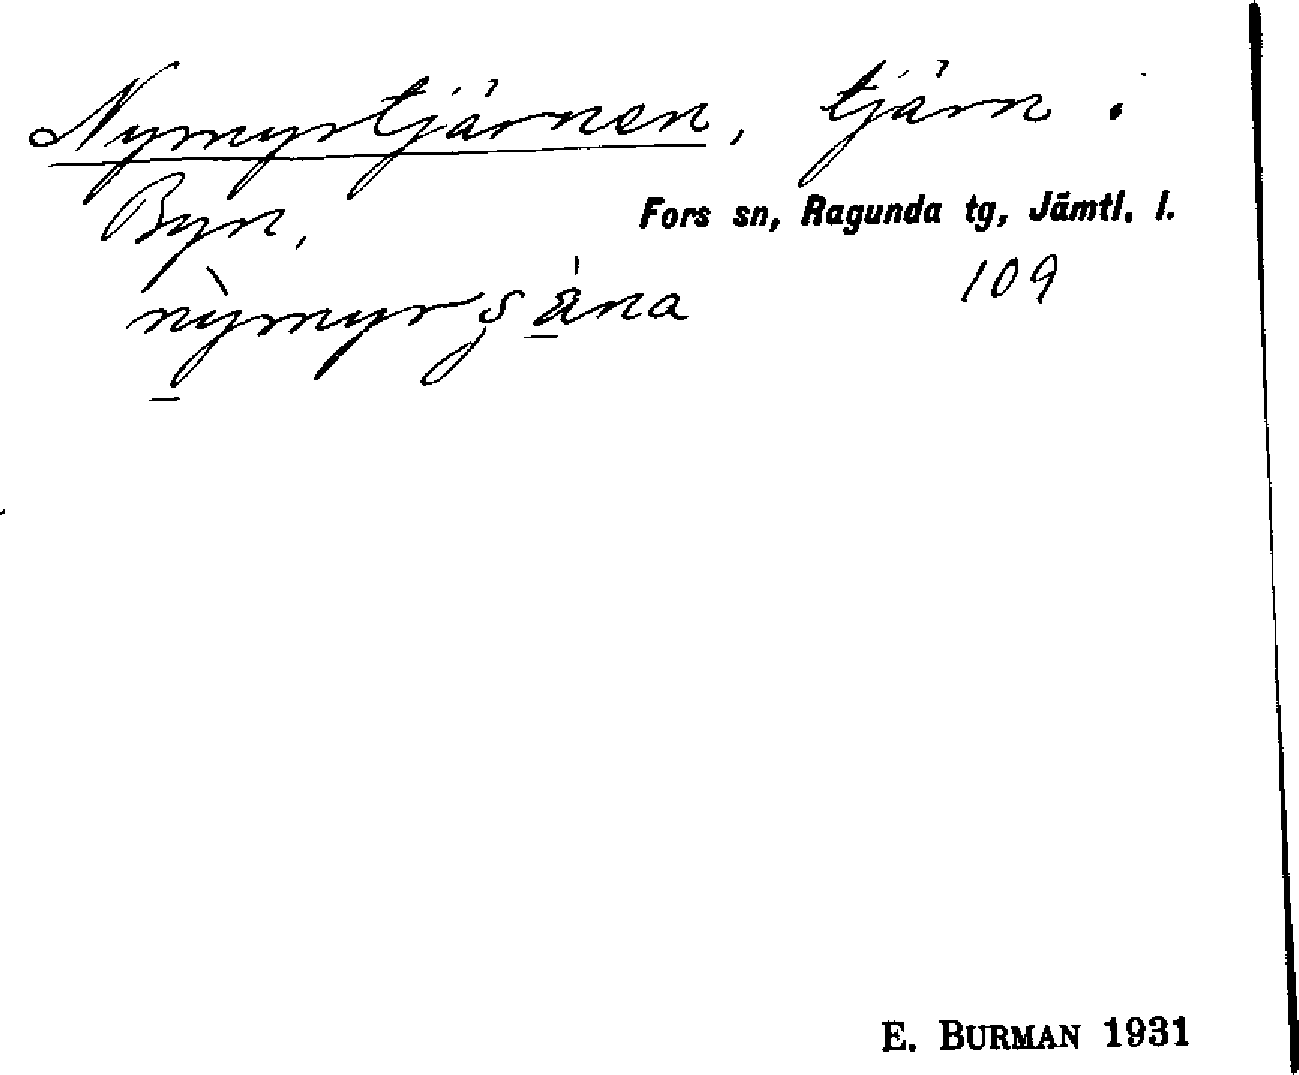 Nymyrtjärnen, tjärn i
Byn,
Fors sn, Ragunda tg, Jämtl. l.
109
E. BURMAN 1931